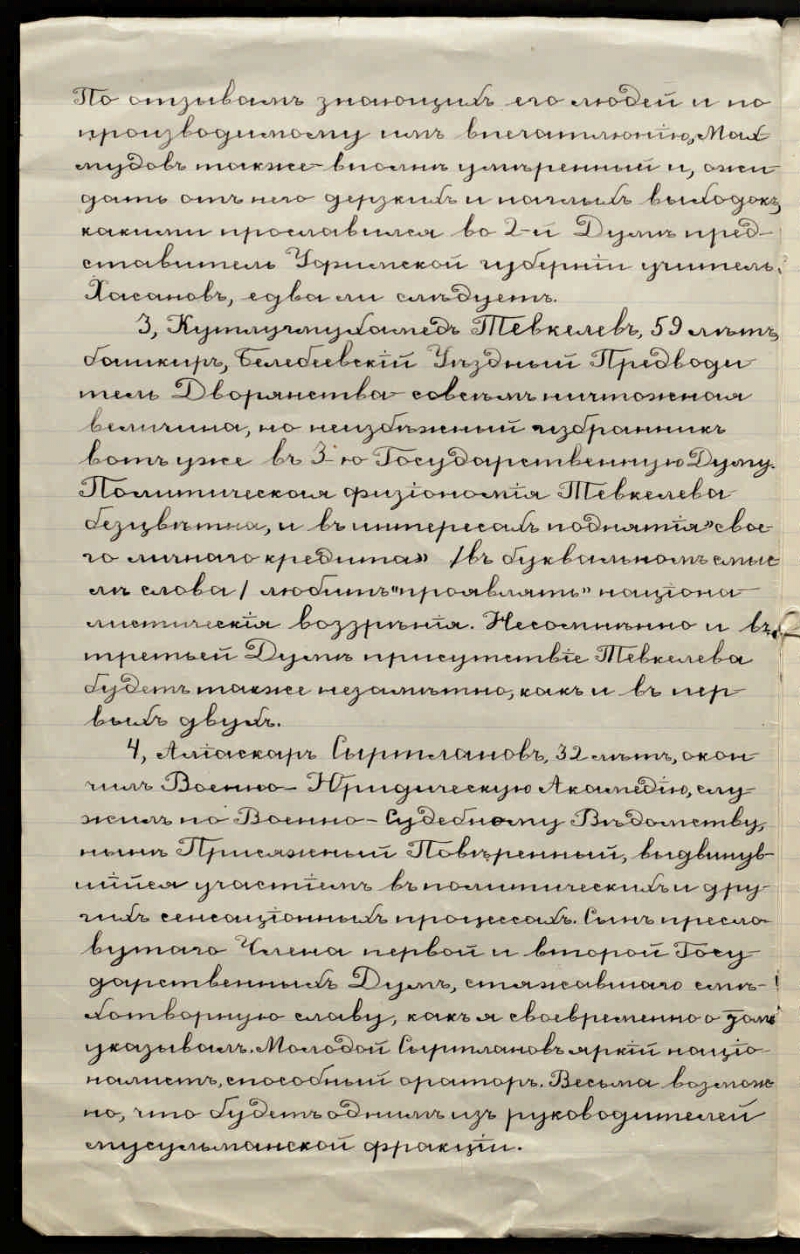 По отзывамъ знающихъ его людей и по
производимому имъ впечатлѣнію, Мах
мудовъ также вполнѣ умѣренный и, ожи-
дать отъ него дерзкихъ и наглыхъ выходокъ,
какими прославился во 2-й Думѣ пред-
ставитель Уфимской губерніи учитель
Хасановъ, едва ли слѣдуетъ.
3, Кутлумухамедъ Тевкелевъ, 59 лѣтъ,
башкиръ, Белебеевскій Уѣздный Предводи
тель Дворянства совсѣмъ ничтожная
величина, но неизбѣжный избранникъ
вотъ уже въ 3-ю Государственную Думу.
Политическая физіономія Тевкелева
безцвѣтна, и въ интересахъ поднятія "свое-
го личнаго кредита" /въ буквальномъ смыс
лѣ слова/ любитъ "проявлять" національ
листическія воззрѣнія. Несомнѣнно и въ
третьей Думѣ присутствіе Тевкелева
будетъ также незамѣтно, какъ и въ пер
выхъ двухъ.
4, Алиаскаръ Сыртлановъ, 32 лѣтъ, окон
чилъ Военно-Юридическую Академію, слу
жилъ по Военно-Судебному Вѣдомству,
нынѣ Присяжный Повѣренный, выдвинув-
шійся участіемъ въ политическихъ и дру-
гихъ сенсаціонныхъ процессахъ. Сынъ пресло
вутаго Члена первой и второй Госу
дарственныхъ Думъ, стяжавшаго смѣ-
хотворную славу, какъ я своевременно о томъ
указывалъ. Молодой Сыртлановъ яркій націо
налистъ, способный ораторъ. Весьма возмож
но, что будетъ однимъ изъ руководителей
мусульманской фракціи.